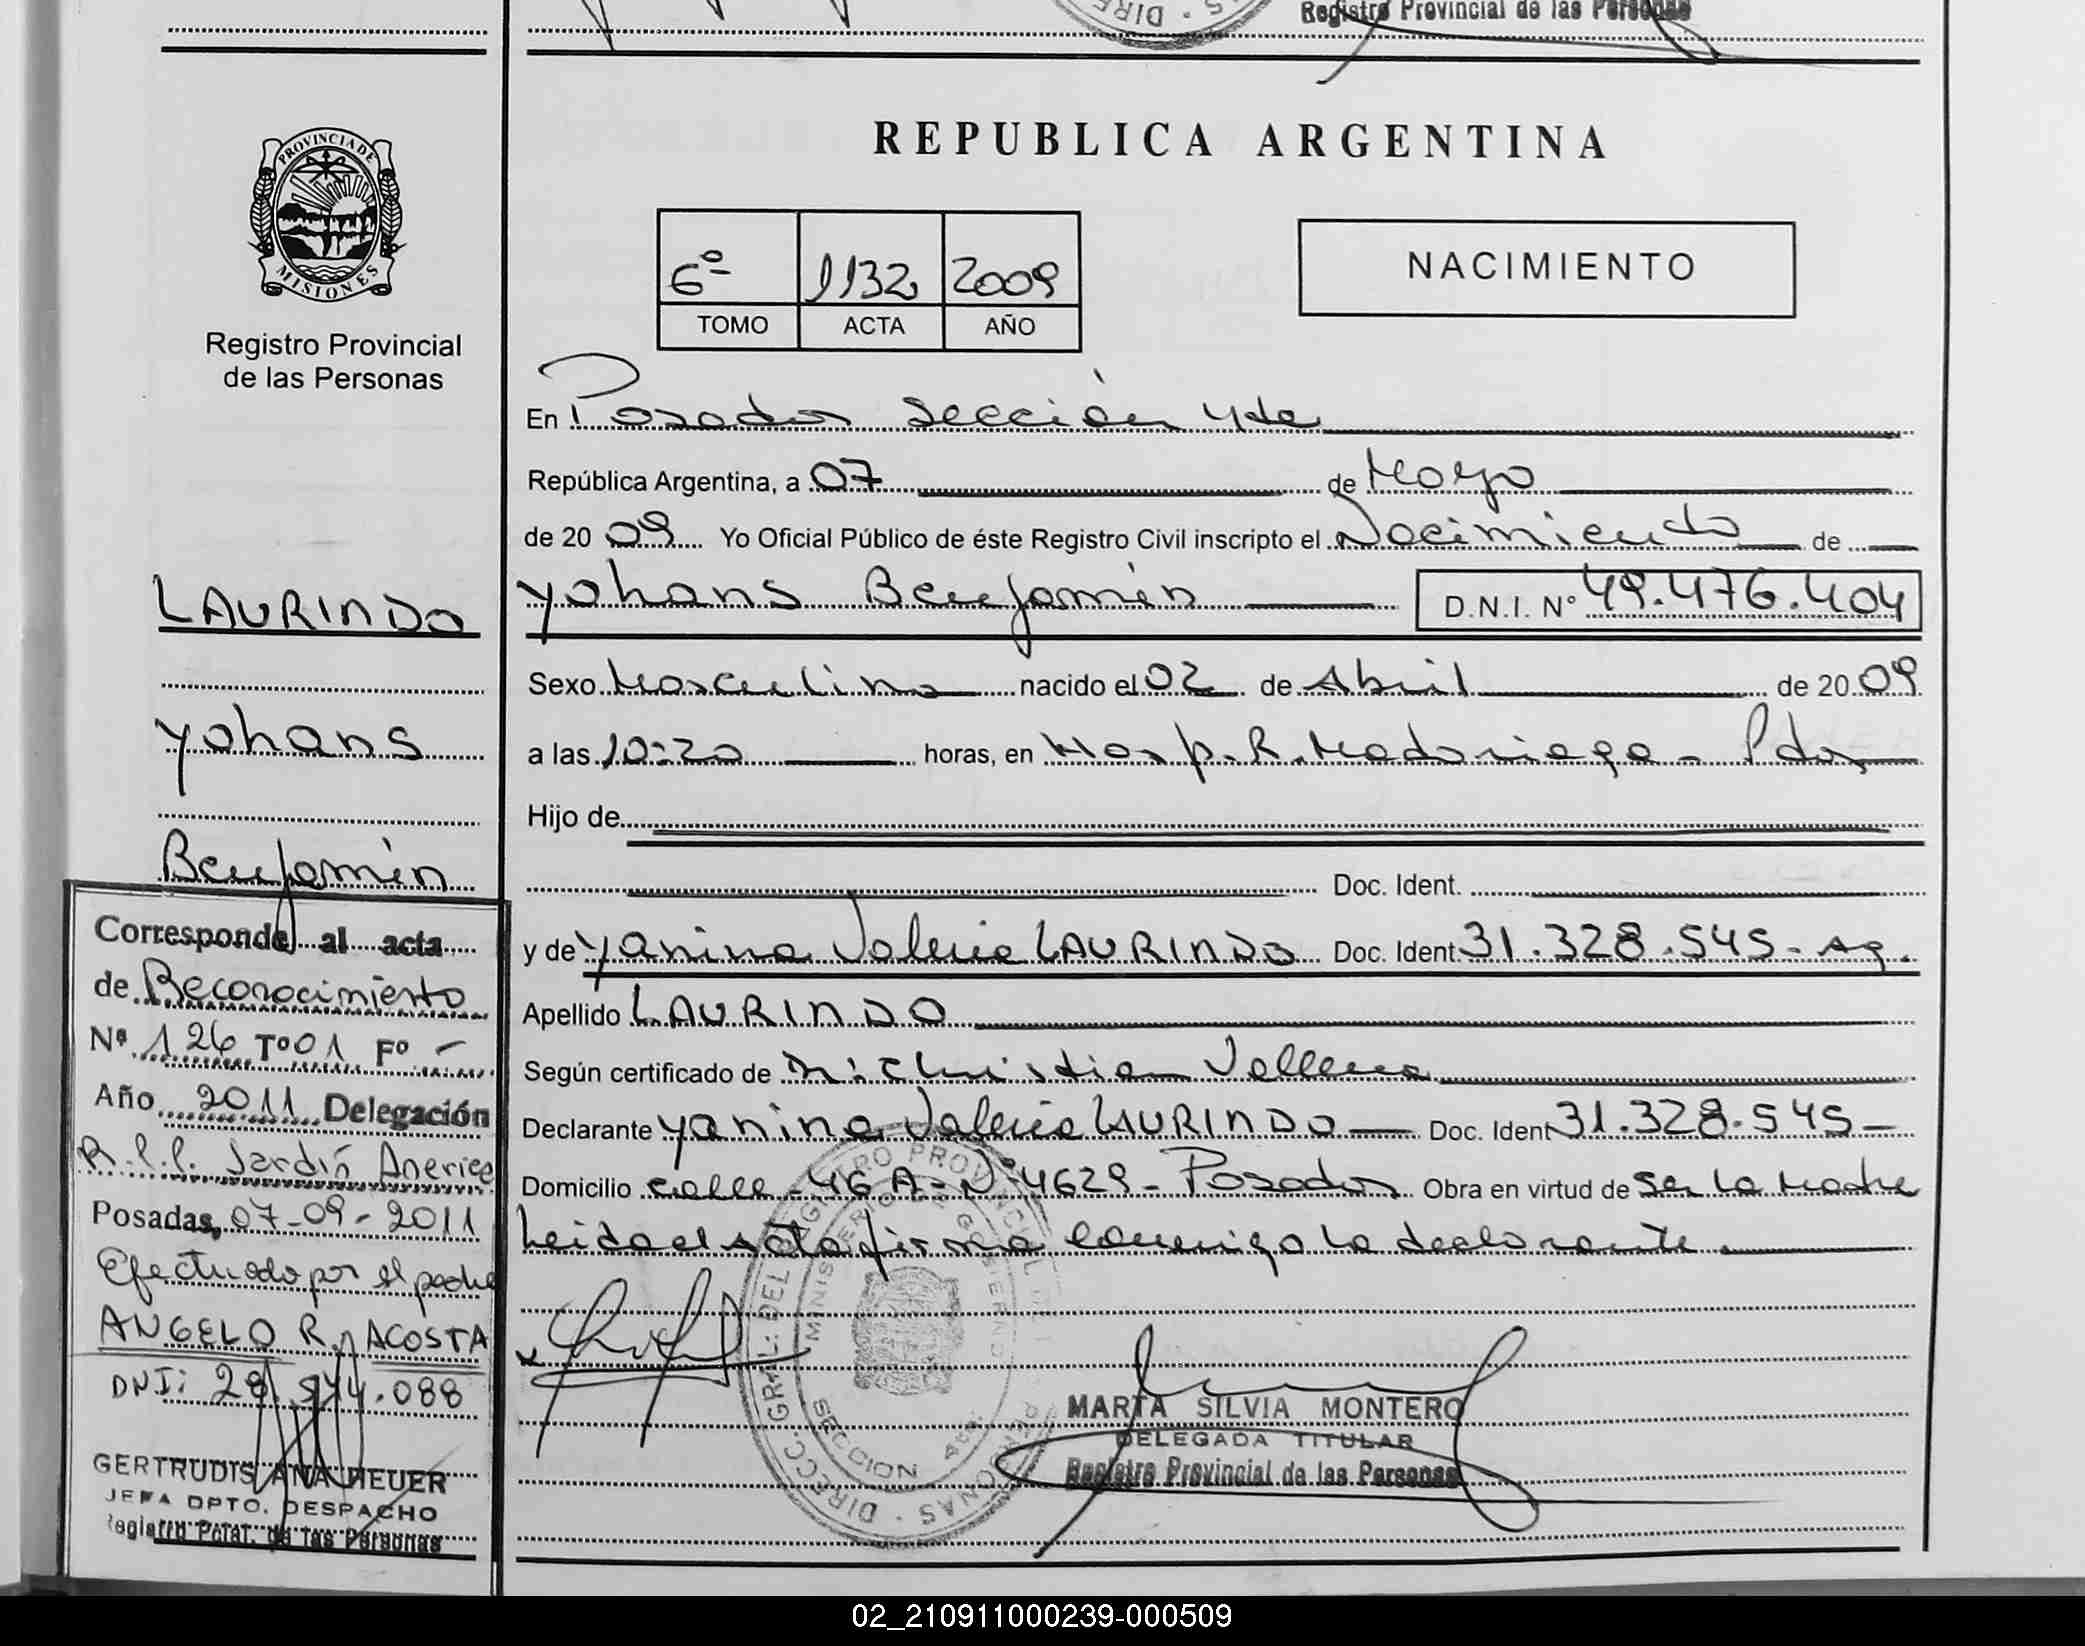 Registro Provincial de las Personas
PROVINCIA DE
MISIONES
Registro Provincial
de las Personas
LAURINDO
Yohans
Benjamín
Corresponde al acta
de Reconocimiento
Nº 126 Tº 01 Fº -
Año 2011 Delegación
R.P.P. Jardín America
Posadas, 07-09-2011
Efectuado por el padre
ANGELO R. ACOSTA
DNI: 28.944.088
GERTRUDIS ANA HEUER
JEFA DPTO. DESPACHO
Registro Pcial. de las Personas
REPUBLICA ARGENTINA
6º 1132 2009
TOMO ACTA AÑO
NACIMIENTO
En Posadas Sección 4ta
República Argentina, a 07 de Mayo
de 20 09 Yo Oficial Público de éste Registro Civil inscripto el Nacimiento de
Yohans Benjamín D.N.I. Nº 49.476.404
Sexo Masculino nacido el 02 de Abril de 20 09
a las 10:20 horas, en Hosp. R. Madariaga - Pdas
Hijo de
Doc. Ident.
y de Yanina Valeria LAURINDO Doc. Ident 31.328.545- Ag.
Apellido LAURINDO
Según certificado de Christian
Declarante Yanina Valeria LAURINDO Doc. Ident 31.328.545-
Domicilio calle - 46 A - Nº 4629 - Posadas Obra en virtud de Ser La Madre
Leida el Acta firma conmigo La declarante.
DIRECC. GRAL: DEL REGISTRO PROVINCIAL DE PERSONAS
MINISTERIO DE GOBIERNO
SECCION 4ta.
MARTA SILVIA MONTERO
DELEGADA TITULAR
Registro Provincial de las Personas
02_210911000239-000509